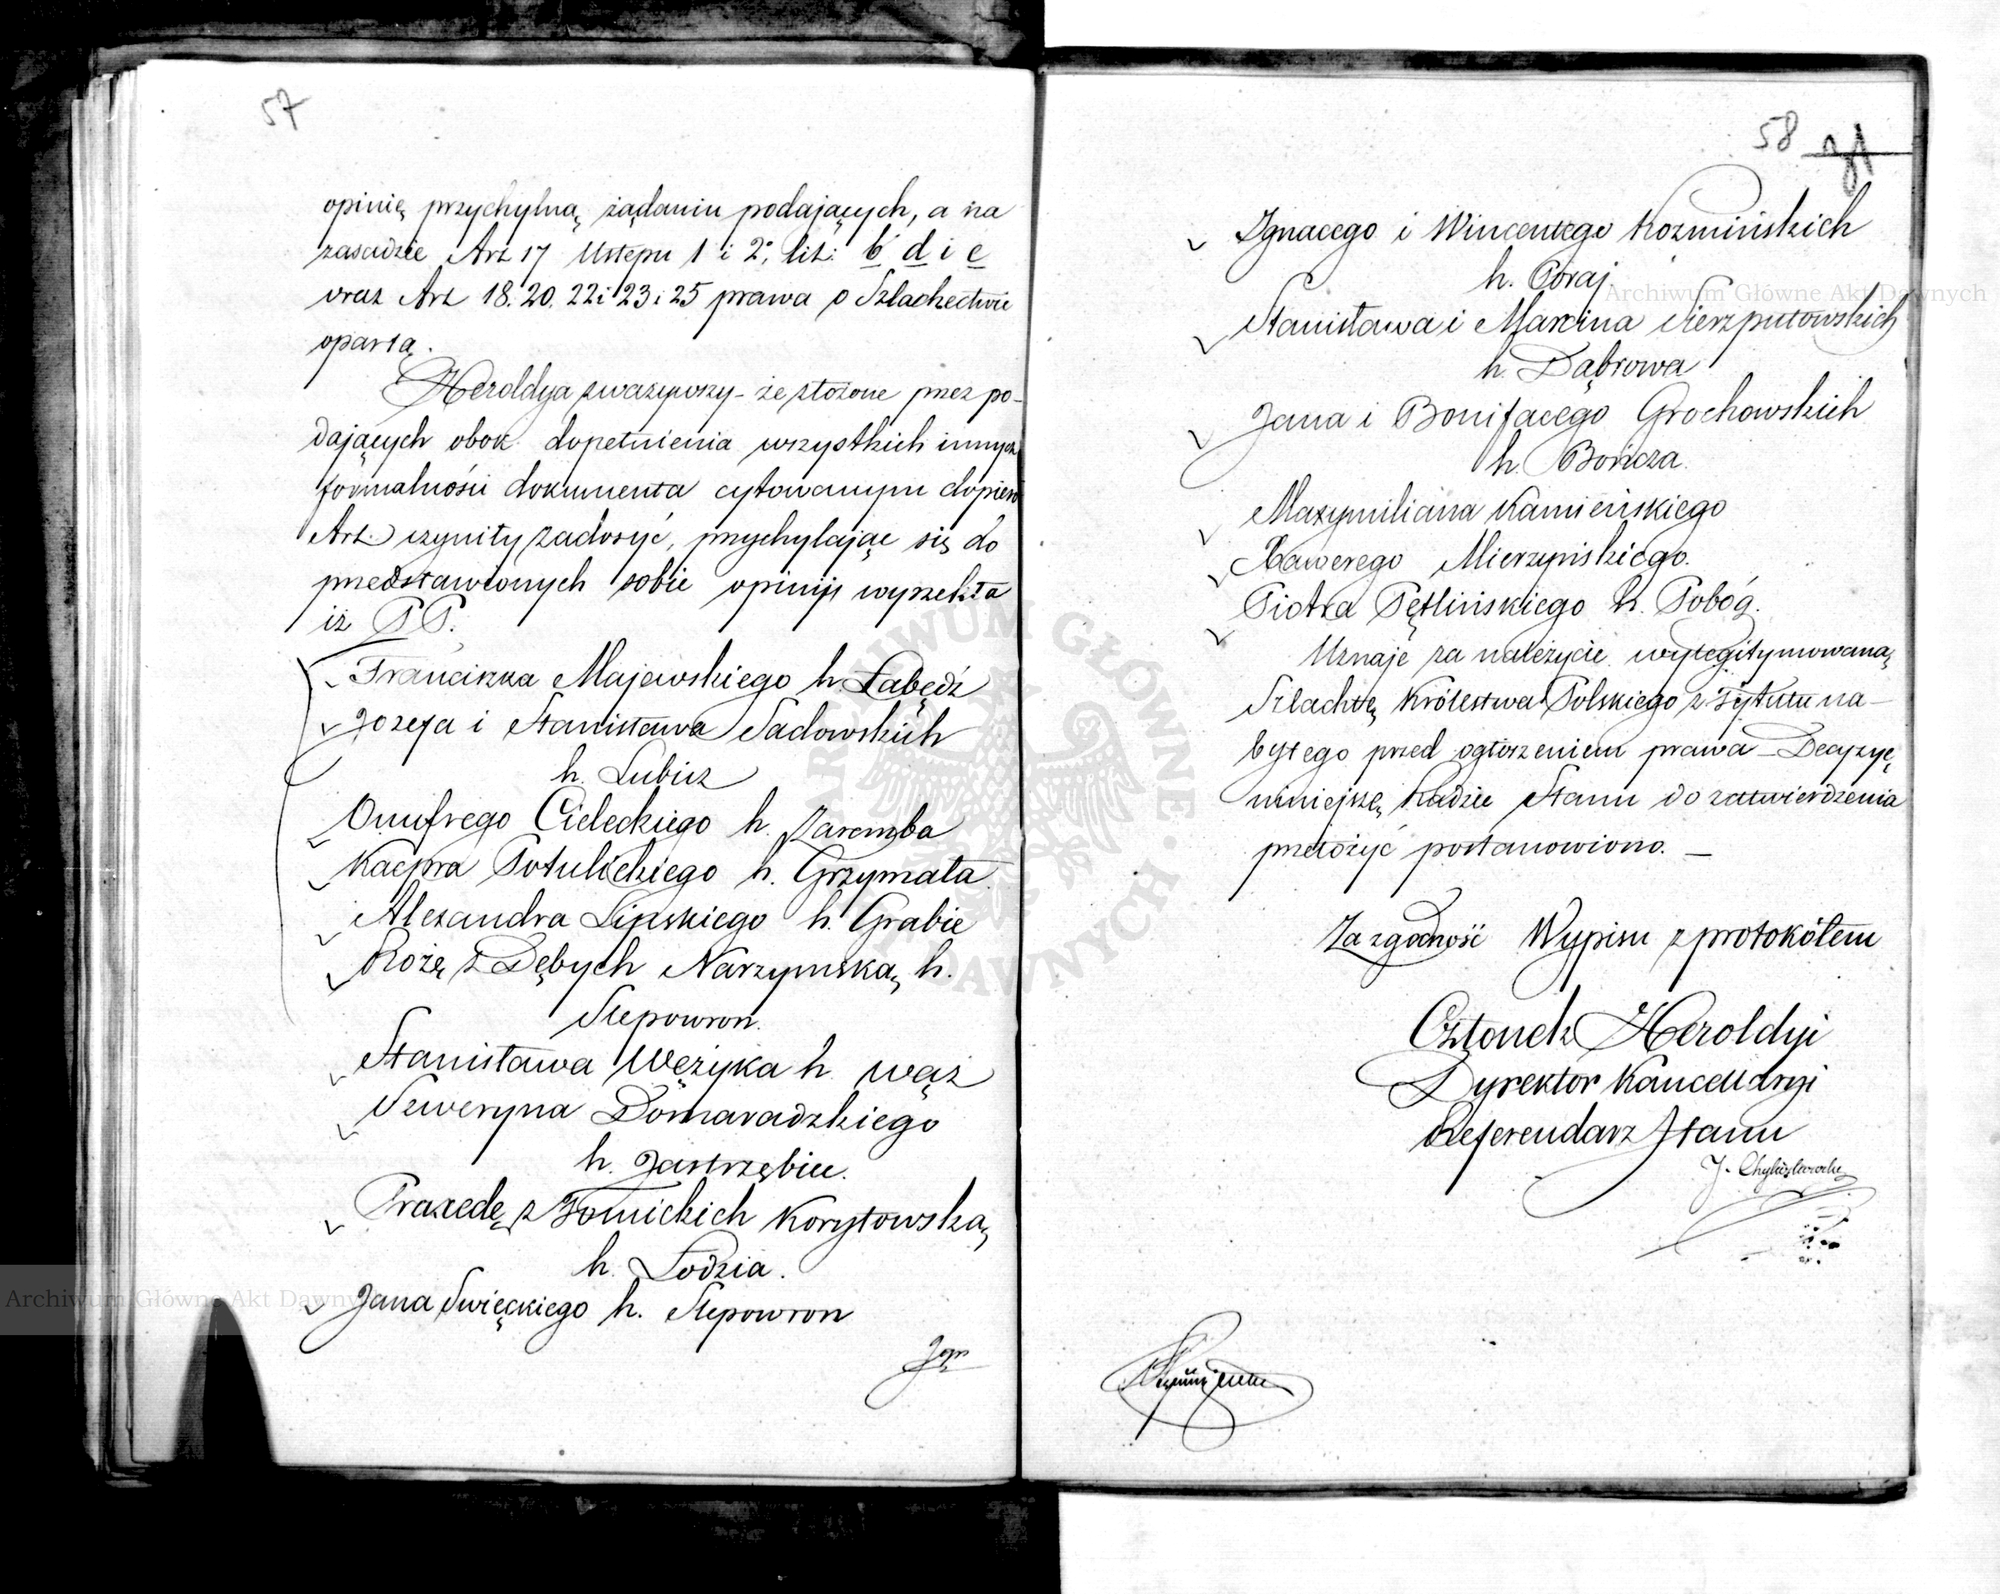 57
opinię przychylną żądaniu podających, a na
zasadzie Art 17 Ustępu 1 i 2° lit: b d i e
oraz Art 18. 20. 22 i 23 i 25 prawa o Szlachectwie
opartą.
Heroldya zważywszy - że złożone przez po-
dających obok dopełnienia wszystkich innych
formalności dokumenta cytowanym dopiero
Art. czyniły zadosyć, przychylając się do
przedstawionych sobie opinij wyrzekła
iż PP.
Franciszka Majewskiego h. Łabędź
Jozefa i Stanisława Sadowskich
h. Lubicz
Onufrego Cieleckiego h. Zaremba
Kacpra Potulickiego h. Grzymała
Alexandra Lipskiego h. Grabie
Rożę z Dębych Narzymską h.
Slepowron.
Stanisława Wężyka h. Wąż
Seweryna Domaradzkiego
h. Jastrzębiec.
Praxedę z Tomickich Korytowską
h. Łodzia.
Jana Swięckiego h. Slepowron
58
Ignacego i Wincentego Kozmińskich
h. Poraj.
Stanisława i Marcina Sierzputowskich
h. Dąbrowa
Jana i Bonifacego Grochowskich
h. Bończa.
Maxymiliana Kamieńskiego
Xawerego Mierzyńskiego.
Piotra Pętlińskiego h. Pobóg.
Uznaje za należycie wylegitymowaną
Szlachtę Królestwa Polskiego z Tytułu na-
bytego przed ogłoszeniem prawa - Decyzyę
niniejszę Radzie Stanu do zatwierdzenia
przełożyć postanowiono. —
Za zgodność Wypisu z protokółem
Członek Heroldyi
Dyrektor Kancellaryi
Referendarz Stanu
Archiwum Główne Akt Dawnych
Archiwum Główne Akt Dawnych
ARCHIWUM GŁÓWNE AKT DAWNYCH